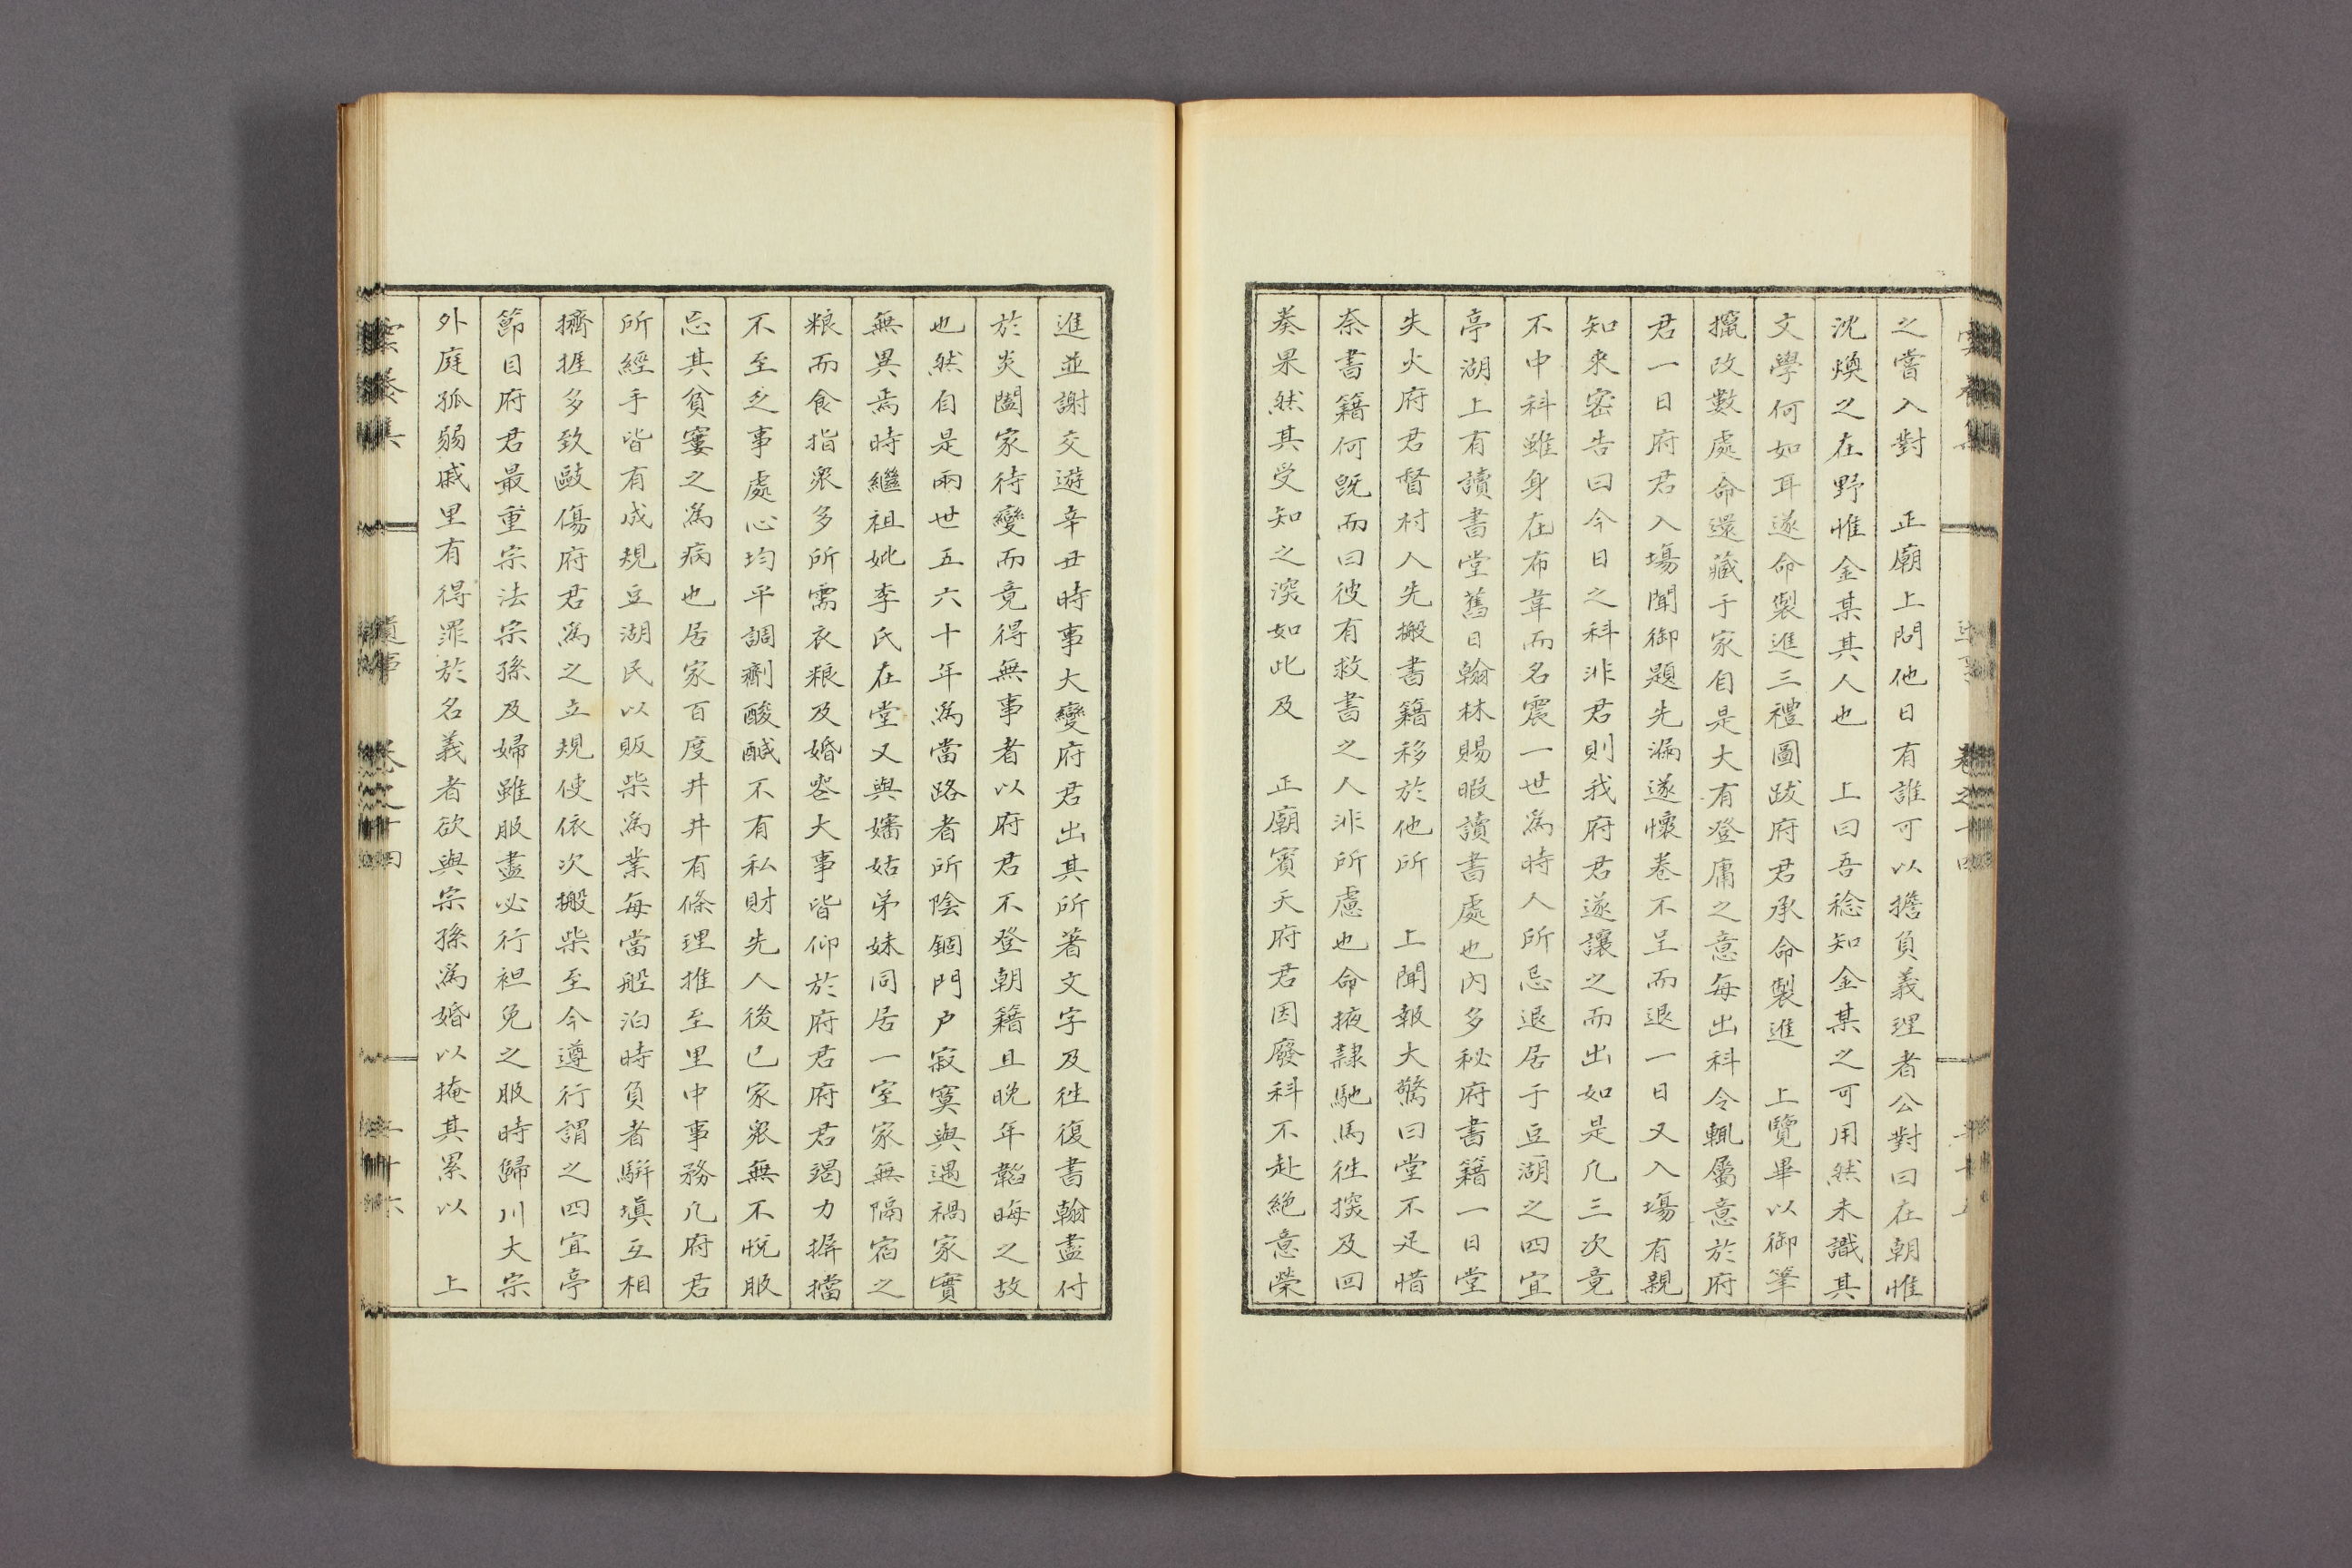 之嘗入對　正廟上問他日有誰可以擔負義理者公對曰在朝惟
沈煥之在野惟金某其人也　上曰吾稔知金某之可用然未識其
文學何如耳遂命製進三禮圖跋府君承命製進　上覽畢以御筆
攛改數處命還藏于家自是大有登庸之意每出科令輒屬意於府
君一日府君入塲聞御題先漏遂懷卷不呈而退一日又入塲有親
知來密告曰今日之科非君則我府君遂讓之而出如是凡三次竟
不中科雖身在布韋而名震一世爲時人所忌退居于豆湖之四宜
亭湖上有讀書堂舊日翰林賜暇讀書處也内多秘府書籍一日堂
失火府君督村人先搬書籍移於他所　上聞報大驚曰堂不足惜
奈書籍何旣而曰彼有救書之人非所慮也命掖隷馳馬徃探及回
奏果然其受知之深如此及　正廟賓天府君因廢科不赴絶意榮
進並謝交遊辛丑時事大變府君出其所著文字及徃復書翰盡付
於炎闔家待變而竟得無事者以府君不登朝籍且晚年韜晦之故
也然自是兩世五六十年爲當路者所陰錮門戶寂寞與遇禍家實
無異焉時繼祖妣李氏在堂又與孀姑弟妹同居一室家無隔宿之
粮而食指衆多所需衣粮及婚喪大事皆仰於府君府君竭力摒擋
不至乏事處心均平調劑酸醎不有私財先人後己家衆無不悅服
忘其貧窶之爲病也居家百度井井有條理推至里中事務凡府君
所經手皆有成規豆湖民以販柴爲業每當船泊時負者騈塡互相
擠捱多致敺傷府君爲之立規使依次搬柴至今遵行謂之四宜亭
節目府君最重宗法宗孫及婦雖服盡必行袒免之服時歸川大宗
外庭孤弱戚里有得罪於名義者欲與宗孫爲婚以掩其累以　上
遺事